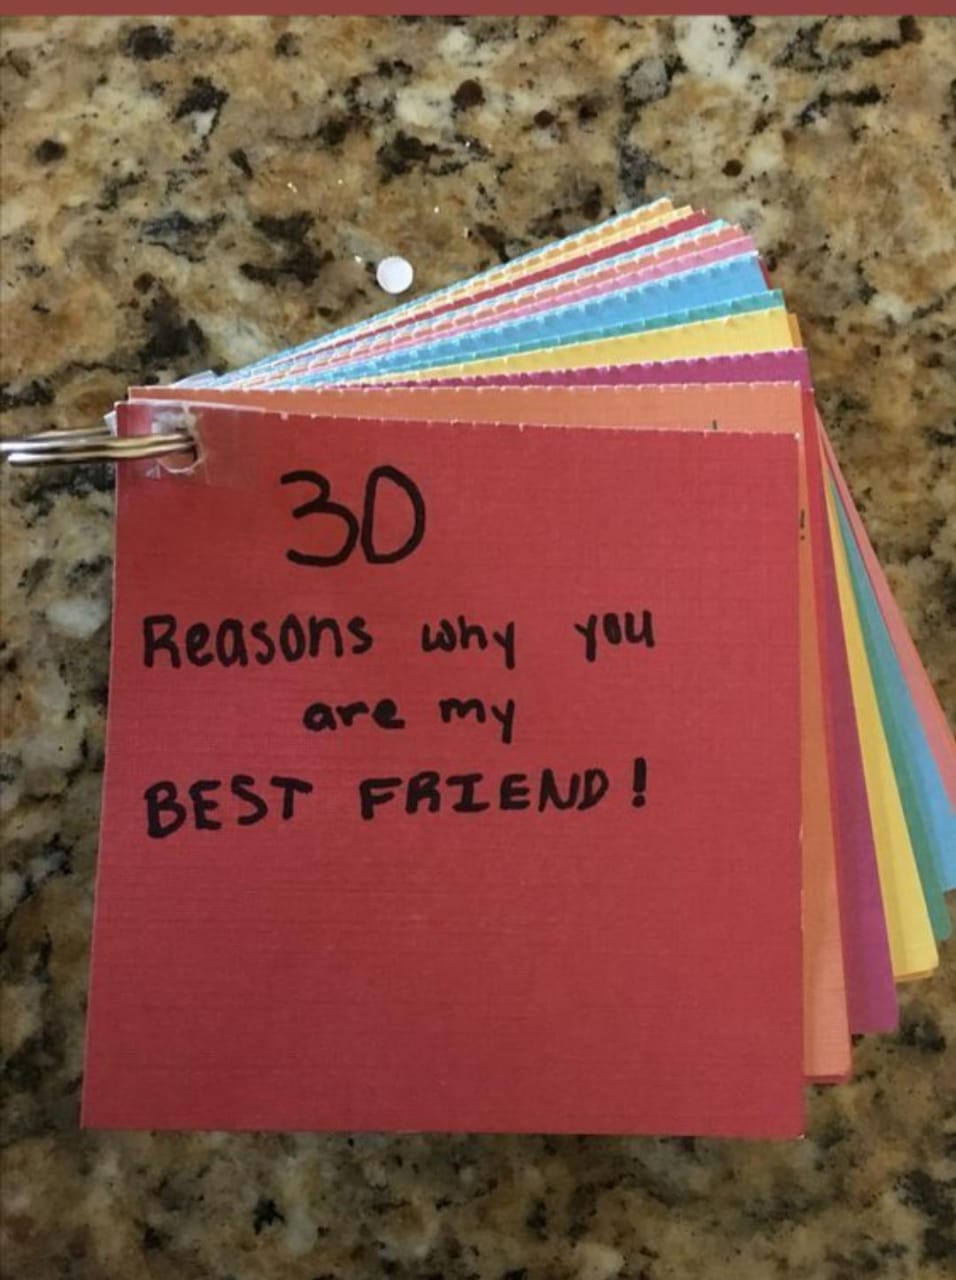 30
Reasons why you
are my
BEST FRIEND!